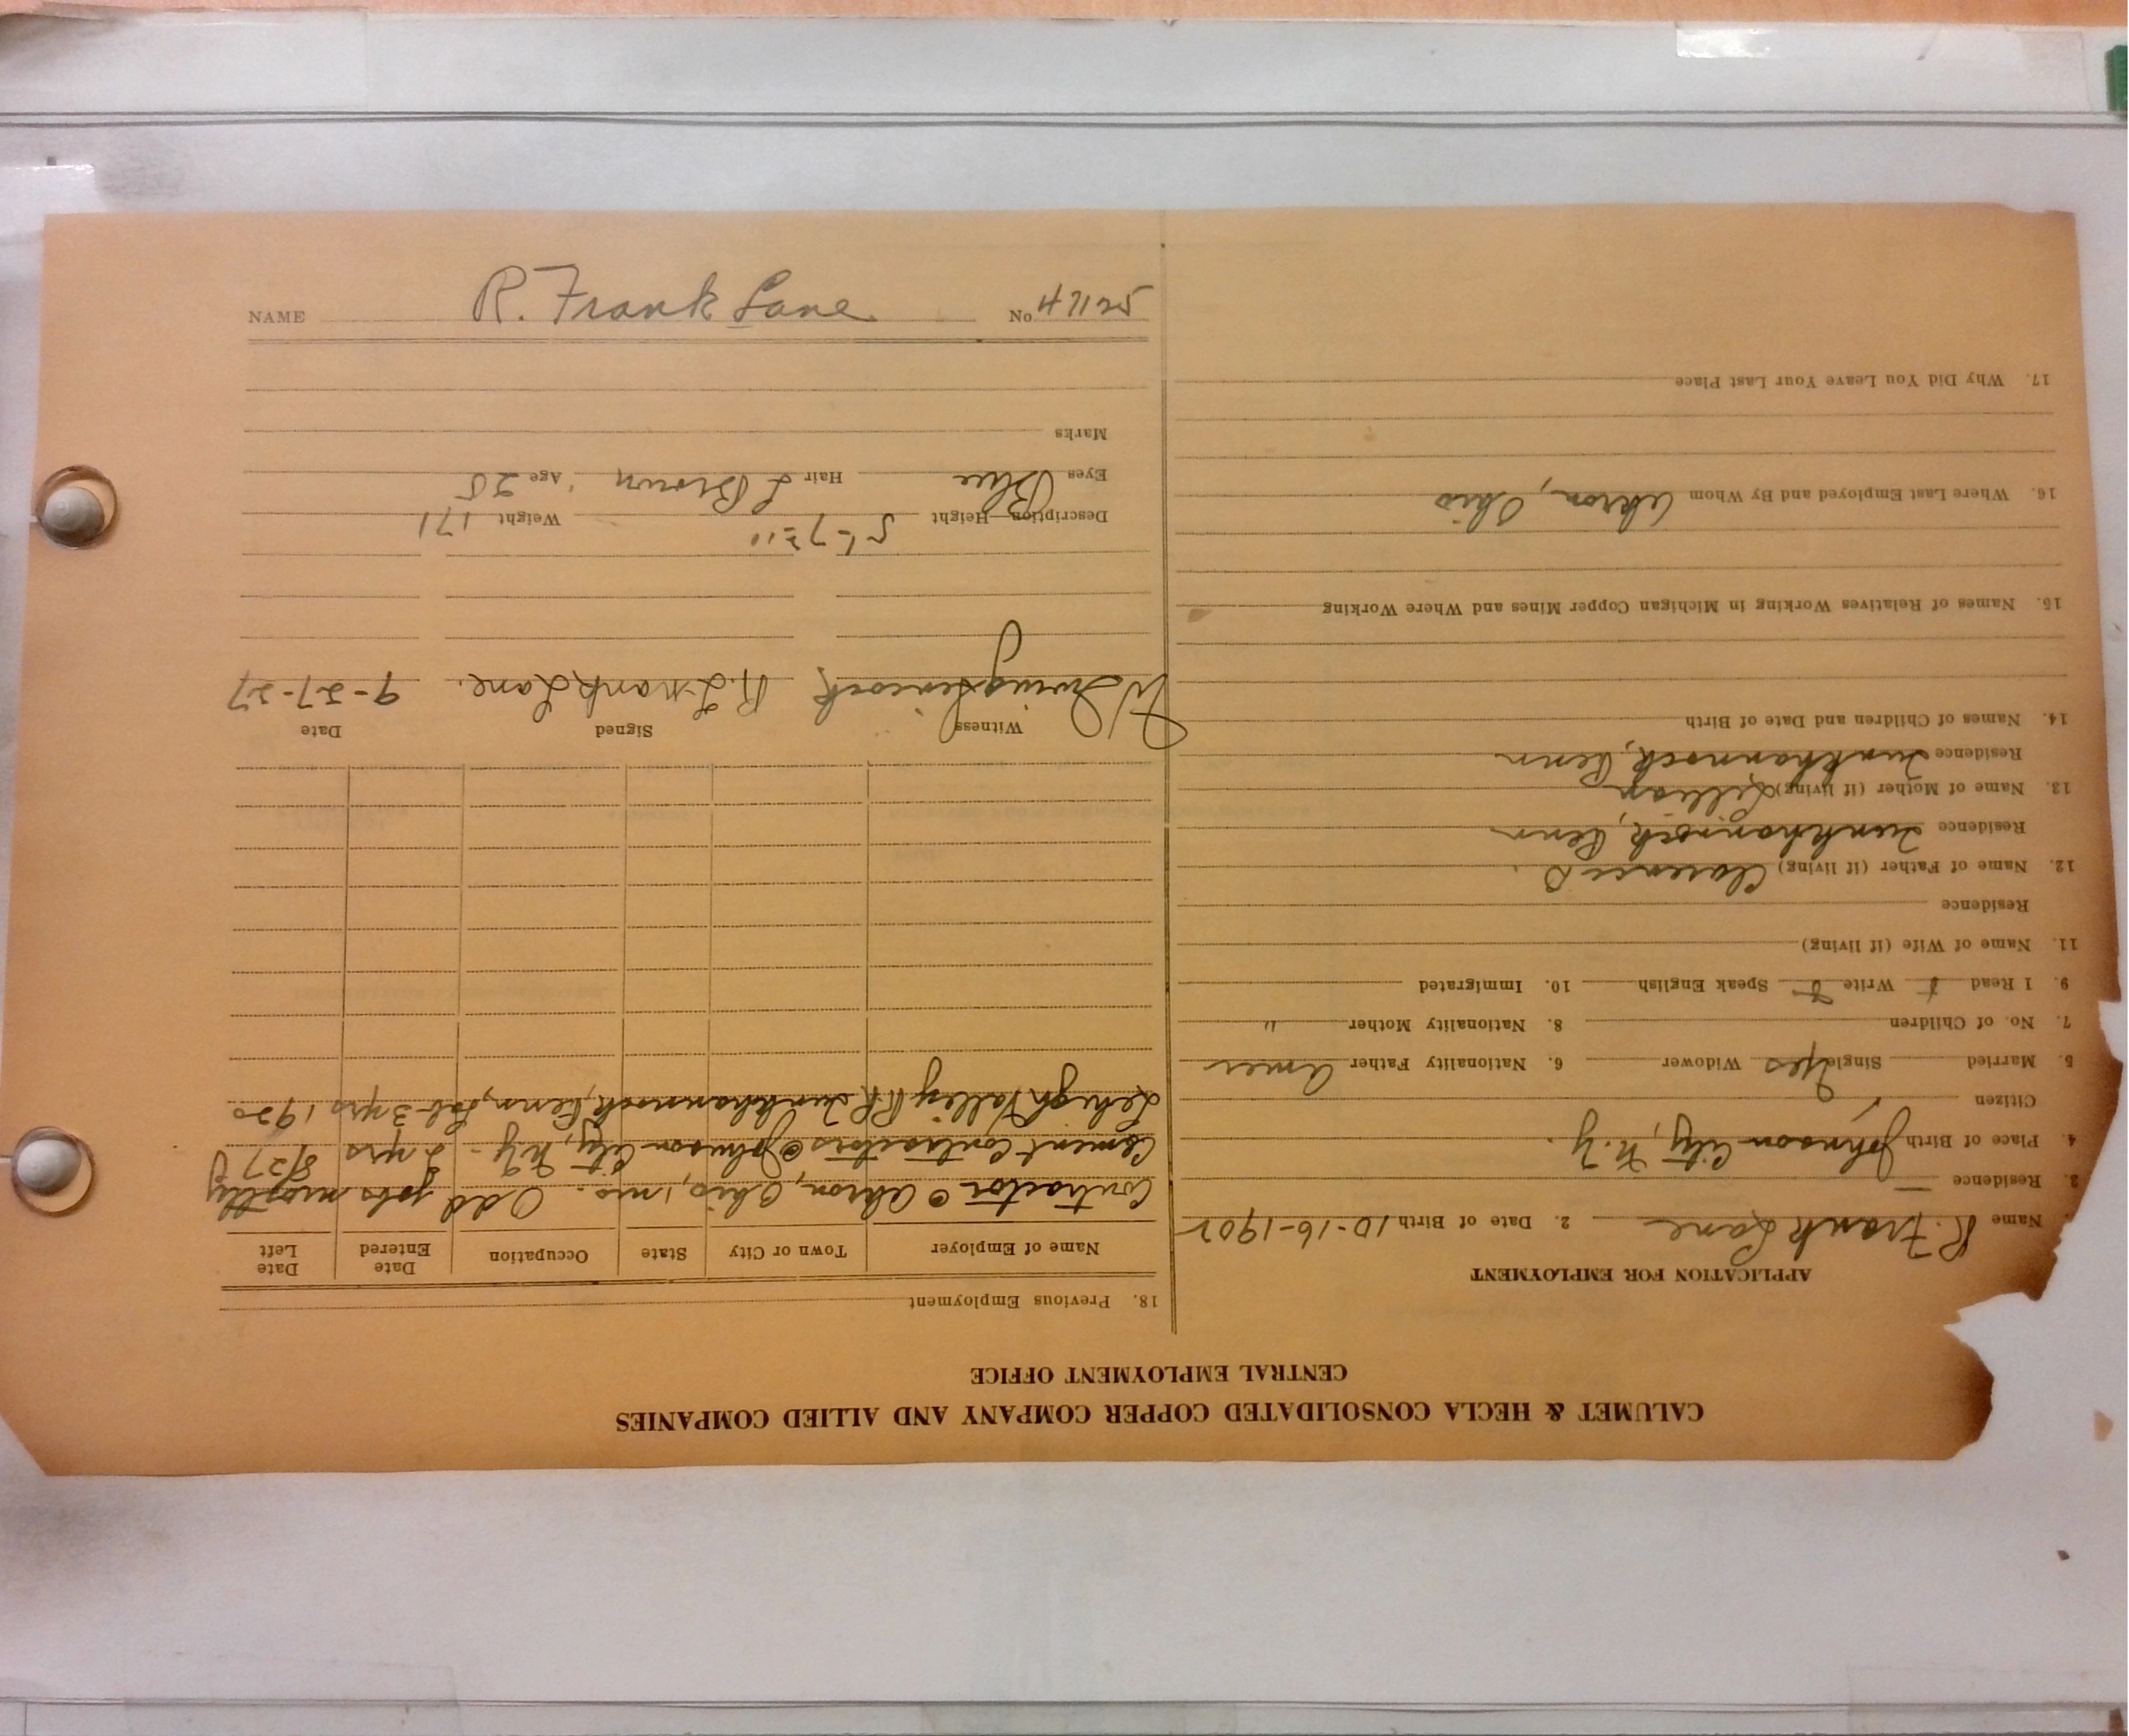 CALUMET & HECLA CONSOLIDATED COPPER COMPANY AND ALLIED COMPANIES
CENTRAL EMPLOYMENT OFFICE
APPLICATION FOR EMPLOYMENT
Name R. Frank Lane 2. Date of Birth 10-16-1902
3. Residence —
4. Place of Birth Johnson City, N.Y.
Citizen
5. Married Single Yes Widower 6. Nationality Father Amer
7. No. of Children 8. Nationality Mother "
9. I Read Write Speak English 10. Immigrated
11. Name of Wife (if living)
Residence
12. Name of Father (if living) Clarence D
Residence Tunkhannock, Penn
13. Name of Mother (if living) Lillian
Residence Tunkhannock, Penn
14. Names of Children and Date of Birth
15. Names of Relatives Working in Michigan Copper Mines and Where Working
16. Where Last Employed and By Whom Akron, Ohio
17. Why Did You Leave Your Last Place
18. Previous Employment
Name of Employer Town or City State Occupation Date Entered Date Left
Contractor @ Akron, Ohio, 1 mo. Odd jobs mostly
8/27
Cement Contractors @ Johnson City, N.Y. - 2 yrs
Lehigh Valley RR Tunkhannock, Penn, Lab 3 yrs 1920
Witness Signed Date
W Irving R. Frank Lane. 9-27-27
Description—Height 5'-7½" Weight 171
Eyes Blue Hair L Brown Age 25
Marks
NAME R. Frank Lane No 47125